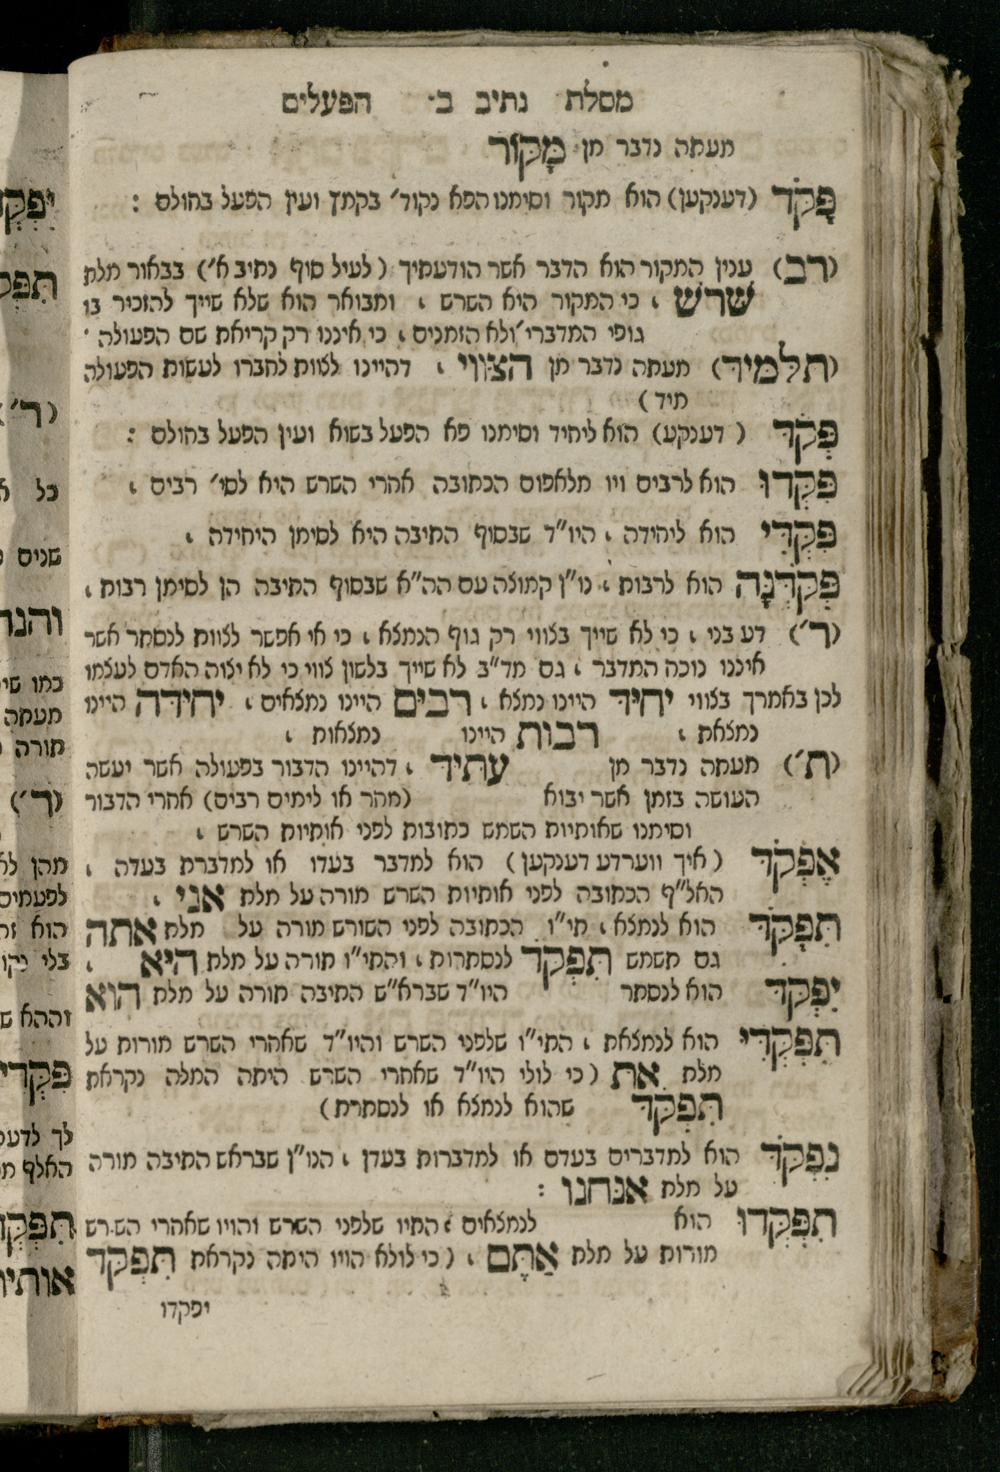 מסלת נתיב ב׳ הפעלים
מעתה נדבר מן מָקוֹר
פָּקֹד (דענקען) הוא מקור וסימנו הפא נקוד׳ בקמץ ועין הפעל בחולם :
(רב) ענין המקור הוא הדבר אשר הודעתיך (לעיל סוף נתיב א׳) בבאור מלת
שֹׁרֶשׁ , כי המקור היא השרש , ומבואר הוא שלא שייך להזכיר בו
גופי המדברי׳ ולא הזמנים , כי איננו רק קריאת שם הפעולה ׳
(תלמיד) מעתה נדבר מן הצווי , דהיינו לצות לחברו לעשות הפעולה
מיד )
פְּקֹד ( דענקע) הוא ליחיד וסימנו פא הפעל בשוא ועין הפעל בחולם :
פִּקְדוּ הוא לרבים ויו מלאפום הכתובה אחרי השרש היא לסי׳ רבים ,
פִּקְדִי הוא ליחידה , היו״ד שבסוף התיבה היא לסימן היחידה ,
פְּקֹדְנָה הוא לרבות , נו״ן קמוצה עם הה״א שבסוף התיבה הן לסימן רבות ,
(ר׳) דע בני , כי לא שייך בצווי רק גוף הנמצא , כי אי אפשר לצוות לנסתר אשר
איננו נוכח המדבר , גם מד״ב לא שייך בלשון צווי כי לא יצוה האדם לעצמו
לכן באמרך בצווי יחיד היינו נמצא , רבים היינו נמצאים , יחידה היינו
נמצאת , רבות היינו נמצאות ,
(ת׳) מעתה נדבר מן עתיד , דהיינו הדבור בפעולה אשר יעשה
העושה בזמן אשר יבוא (מהר או לימים רבים) אחרי הדבור
וסימנו שאותיות השמש כתובות לפני אותיות השרש ,
אֶפְקֹד (איך ווערדע דענקען) הוא למדבר בעדו או למדברת בעדה ,
האל״ף הכתובה לפני אותיות השרש מורה על מלת אני ,
תִּפְקֹד הוא לנמצא , תי״ו הכתובה לפני השורש מורה על מלת אתה
גם תשמש תִּפְקֹד לנסתרות , והתי״ו מורה על מלת היא ,
יִפְקֹד הוא לנסתר היו״ד שברא״ש התיבה מורה על מלת הוא
תִפְקְדִי הוא לנמצאת , התי״ו שלפני השרש והיו״ד שאחרי השרש מורות על
מלת את (כי לולי היו״ד שאחרי השרש היתה המלה נקראת
תִּפְקֹד שהוא לנמצא או לנסתרת)
נִפְקֹד הוא למדברים בעדם או למדברות בעדן , הנו״ן שבראש התיבה מורה
על מלת אנחנו :
תִפְקְדוּ הוא לנמצאים , התיו שלפני השרש והויו שאחרי השרש
מורות על מלת אַתֶּם , (כי לולא הויו היתה נקראת תִּפְקֹד
יפקדו